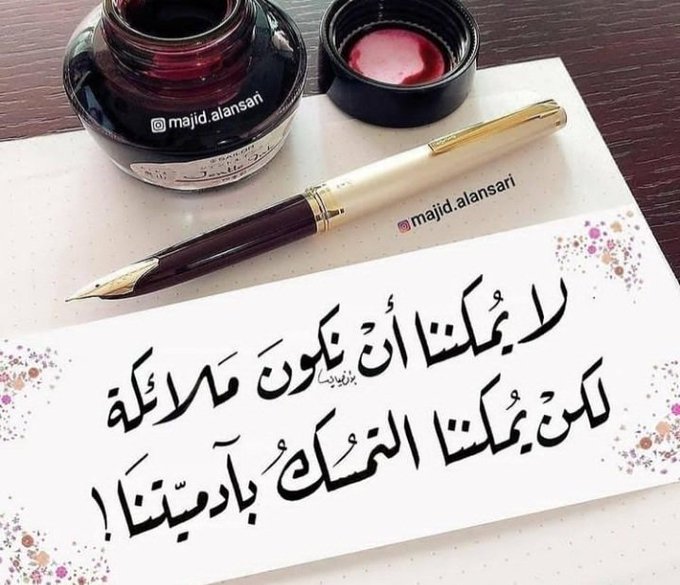 majid.alansari
majid.alansari
لا يُمكننا أنْ نكونَ مَلائكة
لكنْ يُمكننا التمسُكُ بآدميّتنَا !